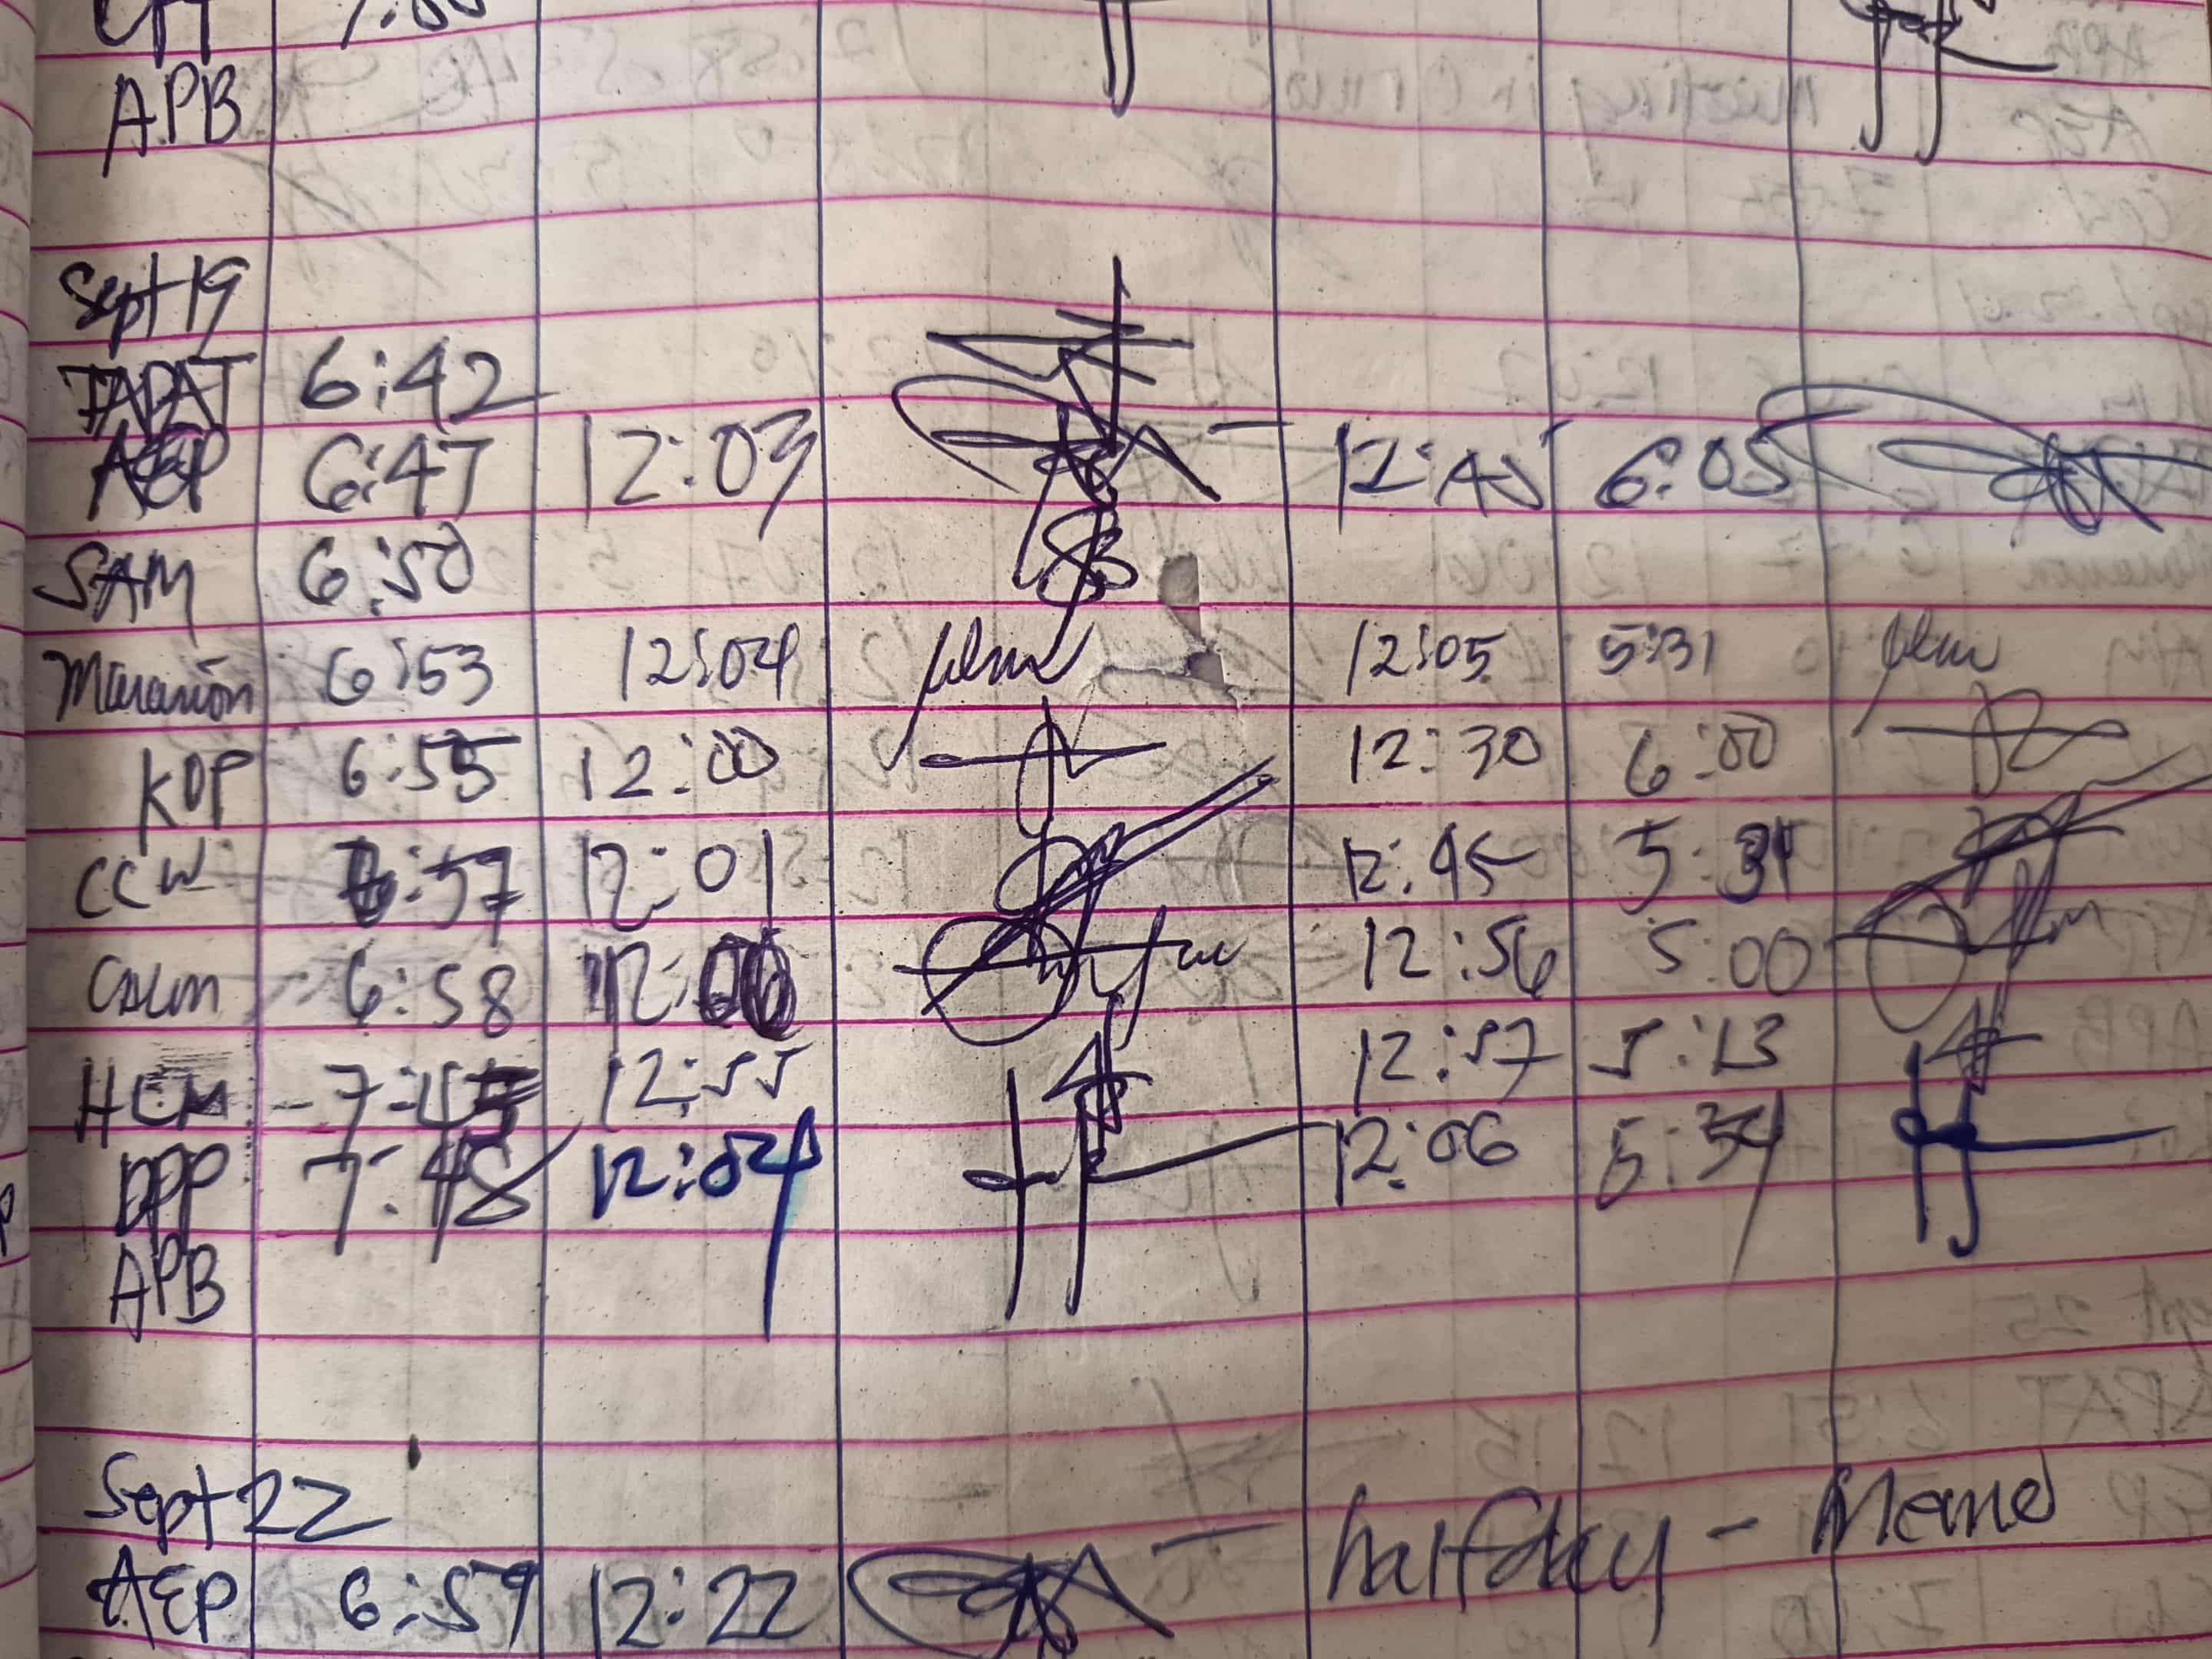 APB
Sept 19
TAPAT 6:42
AEP 6:47 12:03 12:45 6:05
SAM 6:50
Maranion 6:53 12:04 12:05 5:31
KDP 6:55 12:00 12:30 6:00
CCW 6:57 12:01 12:45 5:31
6:58 12:00 12:56 5:00
HCM 12:55 12:57 5:13
DPP 7:48 12:04 12:06 5:34
APB
Sept 22
AEP 6:59 12:22 halfday - Memo